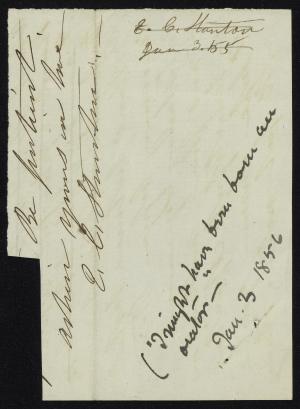 E. C. Stanton
Jan 3. '55
Be patient.
as ever yours in love
E. C. Stanton.
("I might have been born an
orator"
Jan. 3 1856